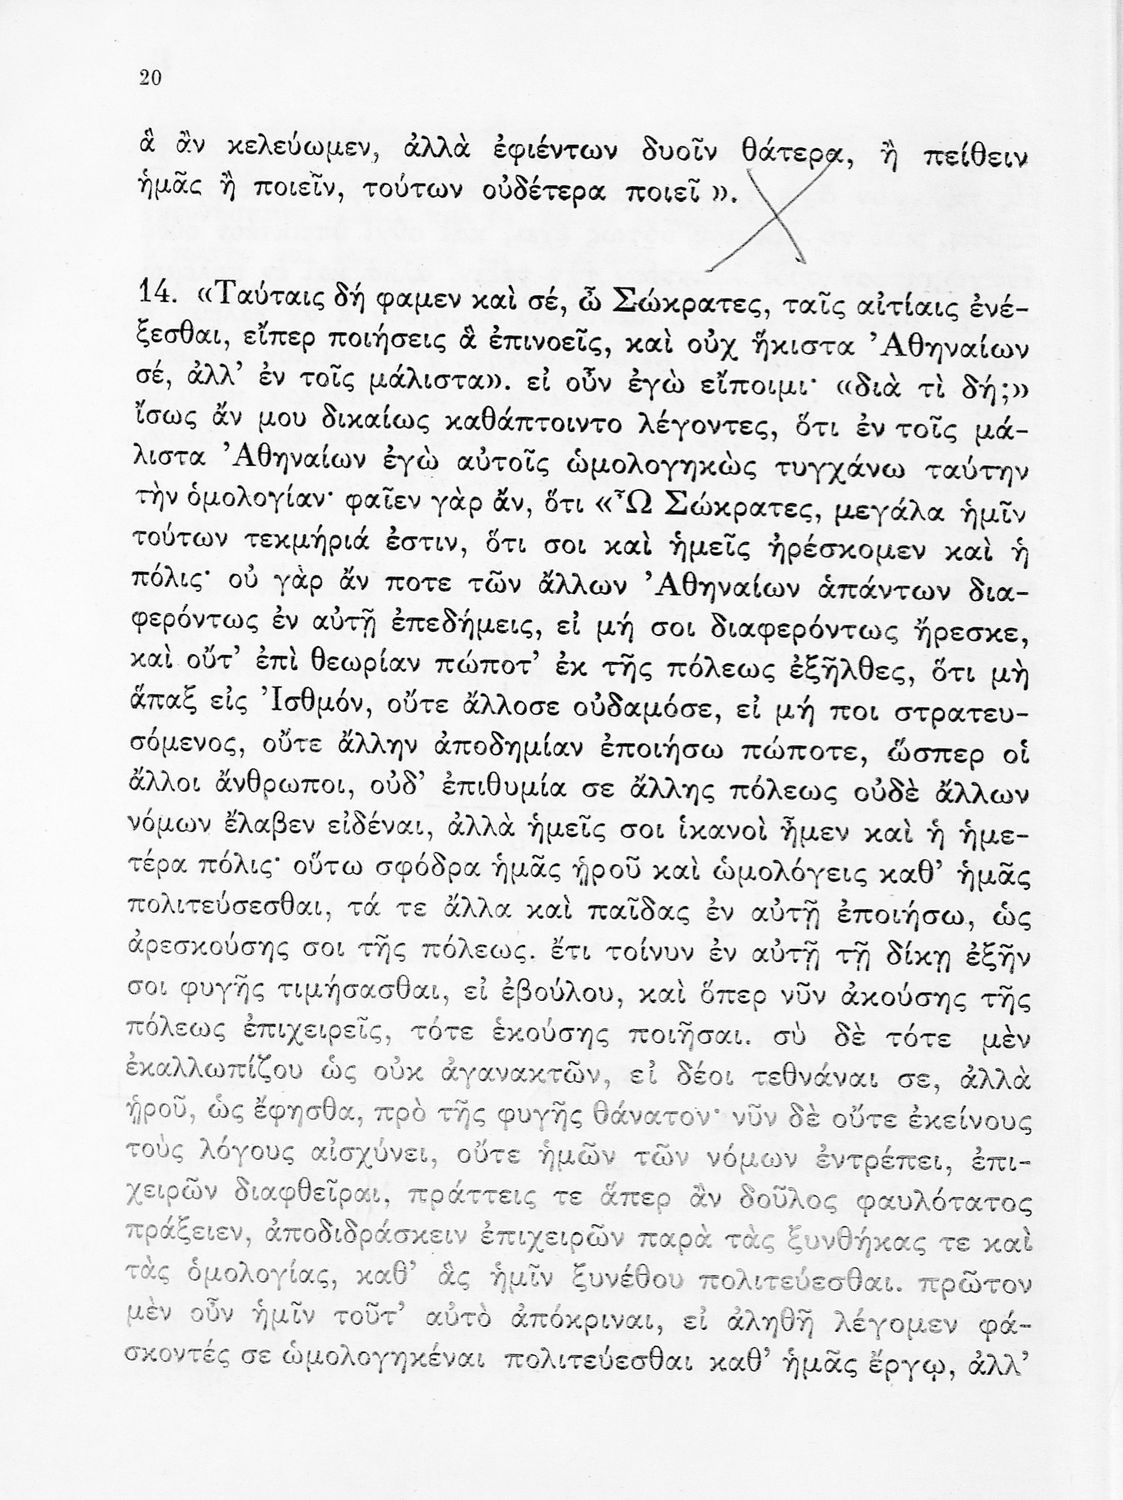 20
ἃ ἂν κελεύωμεν, ἀλλὰ ἐφιέντων δυοῖν θάτερα, ἢ πείθειν
ἡμᾶς ἢ ποιεῖν, τούτων οὐδέτερα ποιεῖ ».
14. «Ταύταις δή φαμεν καὶ σέ, ὦ Σώκρατες, ταῖς αἰτίαις ἐνέ-
ξεσθαι, εἴπερ ποιήσεις ἃ ἐπινοεῖς, καὶ οὐχ ἥκιστα Ἀθηναίων
σέ, ἀλλ’ ἐν τοῖς μάλιστα». εἰ οὖν ἐγὼ εἴποιμι· «διὰ τὶ δή;»
ἴσως ἄν μου δικαίως καθάπτοιντο λέγοντες, ὅτι ἐν τοῖς μά-
λιστα Ἀθηναίων ἐγὼ αὐτοῖς ὡμολογηκὼς τυγχάνω ταύτην
τὴν ὁμολογίαν· φαῖεν γὰρ ἄν, ὅτι «Ὦ Σώκρατες, μεγάλα ἡμῖν
τούτων τεκμήριά ἐστιν, ὅτι σοι καὶ ἡμεῖς ἠρέσκομεν καὶ ἡ
πόλις· οὐ γὰρ ἄν ποτε τῶν ἄλλων Ἀθηναίων ἁπάντων δια-
φερόντως ἐν αὐτῇ ἐπεδήμεις, εἰ μή σοι διαφερόντως ἤρεσκε,
καὶ οὔτ’ ἐπὶ θεωρίαν πώποτ’ ἐκ τῆς πόλεως ἐξῆλθες, ὅτι μὴ
ἅπαξ εἰς Ἰσθμόν, οὔτε ἄλλοσε οὐδαμόσε, εἰ μή ποι στρατευ-
σόμενος, οὔτε ἄλλην ἀποδημίαν ἐποιήσω πώποτε, ὥσπερ οἱ
ἄλλοι ἄνθρωποι, οὐδ’ ἐπιθυμία σε ἄλλης πόλεως οὐδὲ ἄλλων
νόμων ἔλαβεν εἰδέναι, ἀλλὰ ἡμεῖς σοι ἱκανοὶ ἦμεν καὶ ἡ ἡμε-
τέρα πόλις· οὕτω σφόδρα ἡμᾶς ᾑροῦ καὶ ὡμολόγεις καθ’ ἡμᾶς
πολιτεύσεσθαι, τά τε ἄλλα καὶ παῖδας ἐν αὐτῇ ἐποιήσω, ὡς
ἀρεσκούσης σοι τῆς πόλεως. ἔτι τοίνυν ἐν αὐτῇ τῇ δίκῃ ἐξῆν
σοι φυγῆς τιμήσασθαι, εἰ ἐβούλου, καὶ ὅπερ νῦν ἀκούσης τῆς
πόλεως ἐπιχειρεῖς, τότε ἑκούσης ποιῆσαι. σὺ δὲ τότε μὲν
ἐκαλλωπίζου ὡς οὐκ ἀγανακτῶν, εἰ δέοι τεθνάναι σε, ἀλλὰ
ᾑροῦ, ὡς ἔφησθα, πρὸ τῆς φυγῆς θάνατον· νῦν δὲ οὔτε ἐκείνους
τοὺς λόγους αἰσχύνει, οὔτε ἡμῶν τῶν νόμων ἐντρέπει, ἐπι-
χειρῶν διαφθεῖραι, πράττεις τε ἅπερ ἂν δοῦλος φαυλότατος
πράξειεν, ἀποδιδράσκειν ἐπιχειρῶν παρὰ τὰς ξυνθήκας τε καὶ
τὰς ὁμολογίας, καθ’ ἃς ἡμῖν ξυνέθου πολιτεύεσθαι. πρῶτον
μὲν οὖν ἡμῖν τοῦτ’ αὐτὸ ἀπόκριναι, εἰ ἀληθῆ λέγομεν φά-
σκοντές σε ὡμολογηκέναι πολιτεύεσθαι καθ’ ἡμᾶς ἔργῳ, ἀλλ’